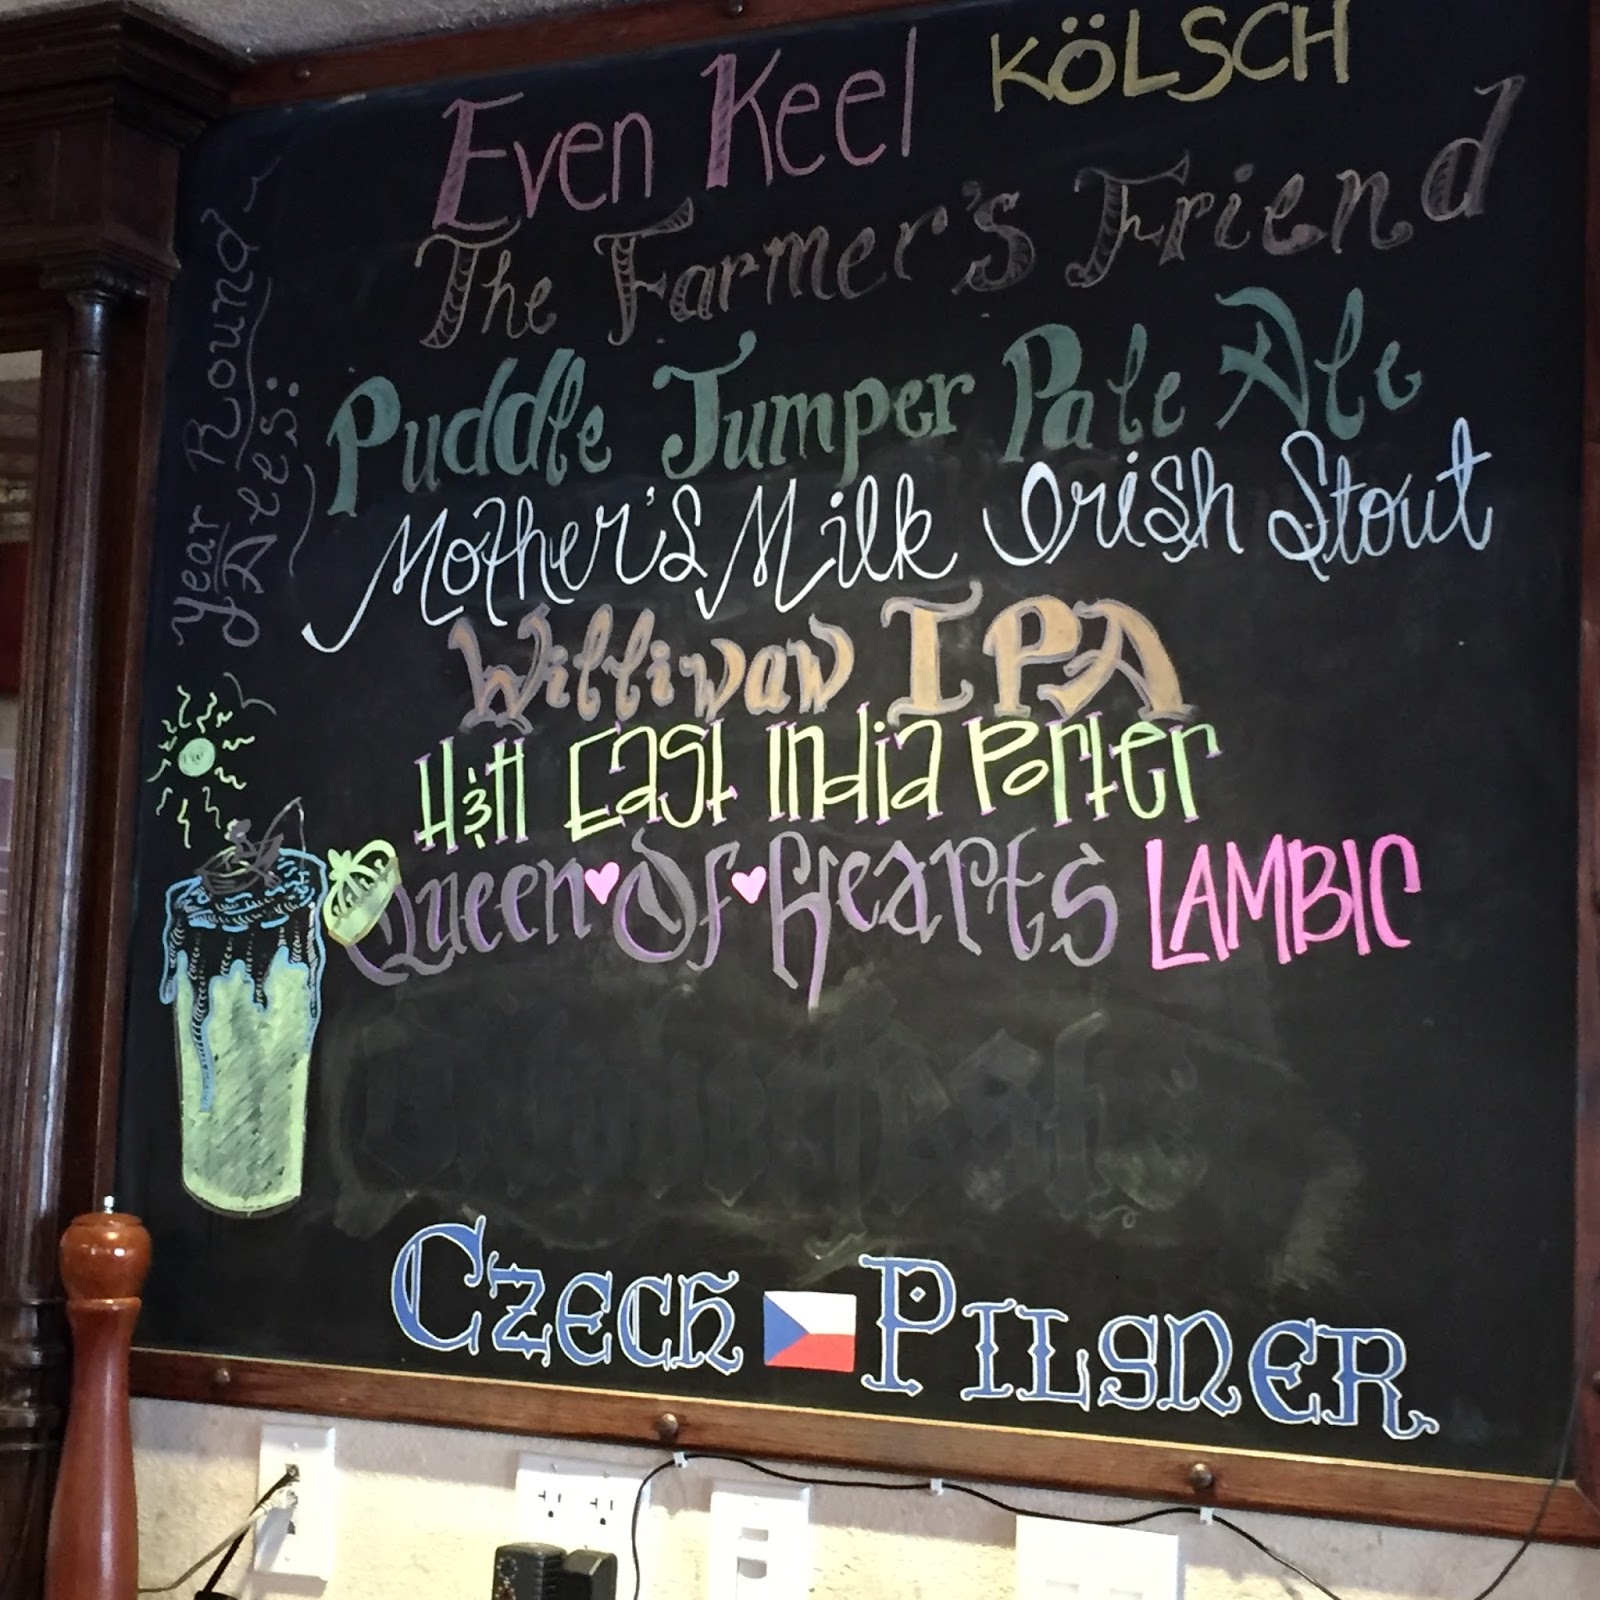 Year Round
Ales:
Even Keel KÖLSCH
The Farmer's Friend
Puddle Jumper Pale Ale
Mother's Milk Irish Stout
Williwaw IPA
H&H East India Porter
Queen Of Hearts LAMBIC
CZECH PILSNER